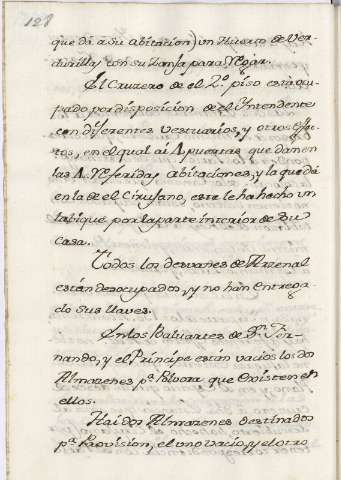 128
que dá a su abitacion) un Huerto de Ver-
durillas con su Zanja para Regar.
El Cruzero de el 2.º piso está ocu-
pado por disposicion de el Intendente
con diferentes vestuarios, y otros efec-
tos, en el qual ai 4 puertas que dan en
las 4 Referidas abitaciones, y la que dá
en la de el Cirujano, este le ha hecho un
tabique por la parte interior de su
casa.
Todos los desvanes de Arsenal
están desocupados, y no han entrega-
do sus llaves.
En los Baluartes de Sn. Fer-
nando, y el Principe están vacios los dos
Almazenes pª. Polvora que existen en
ellos.
Hai dos Almazenes destinados
pª. Provision, el uno vacio, y el otro